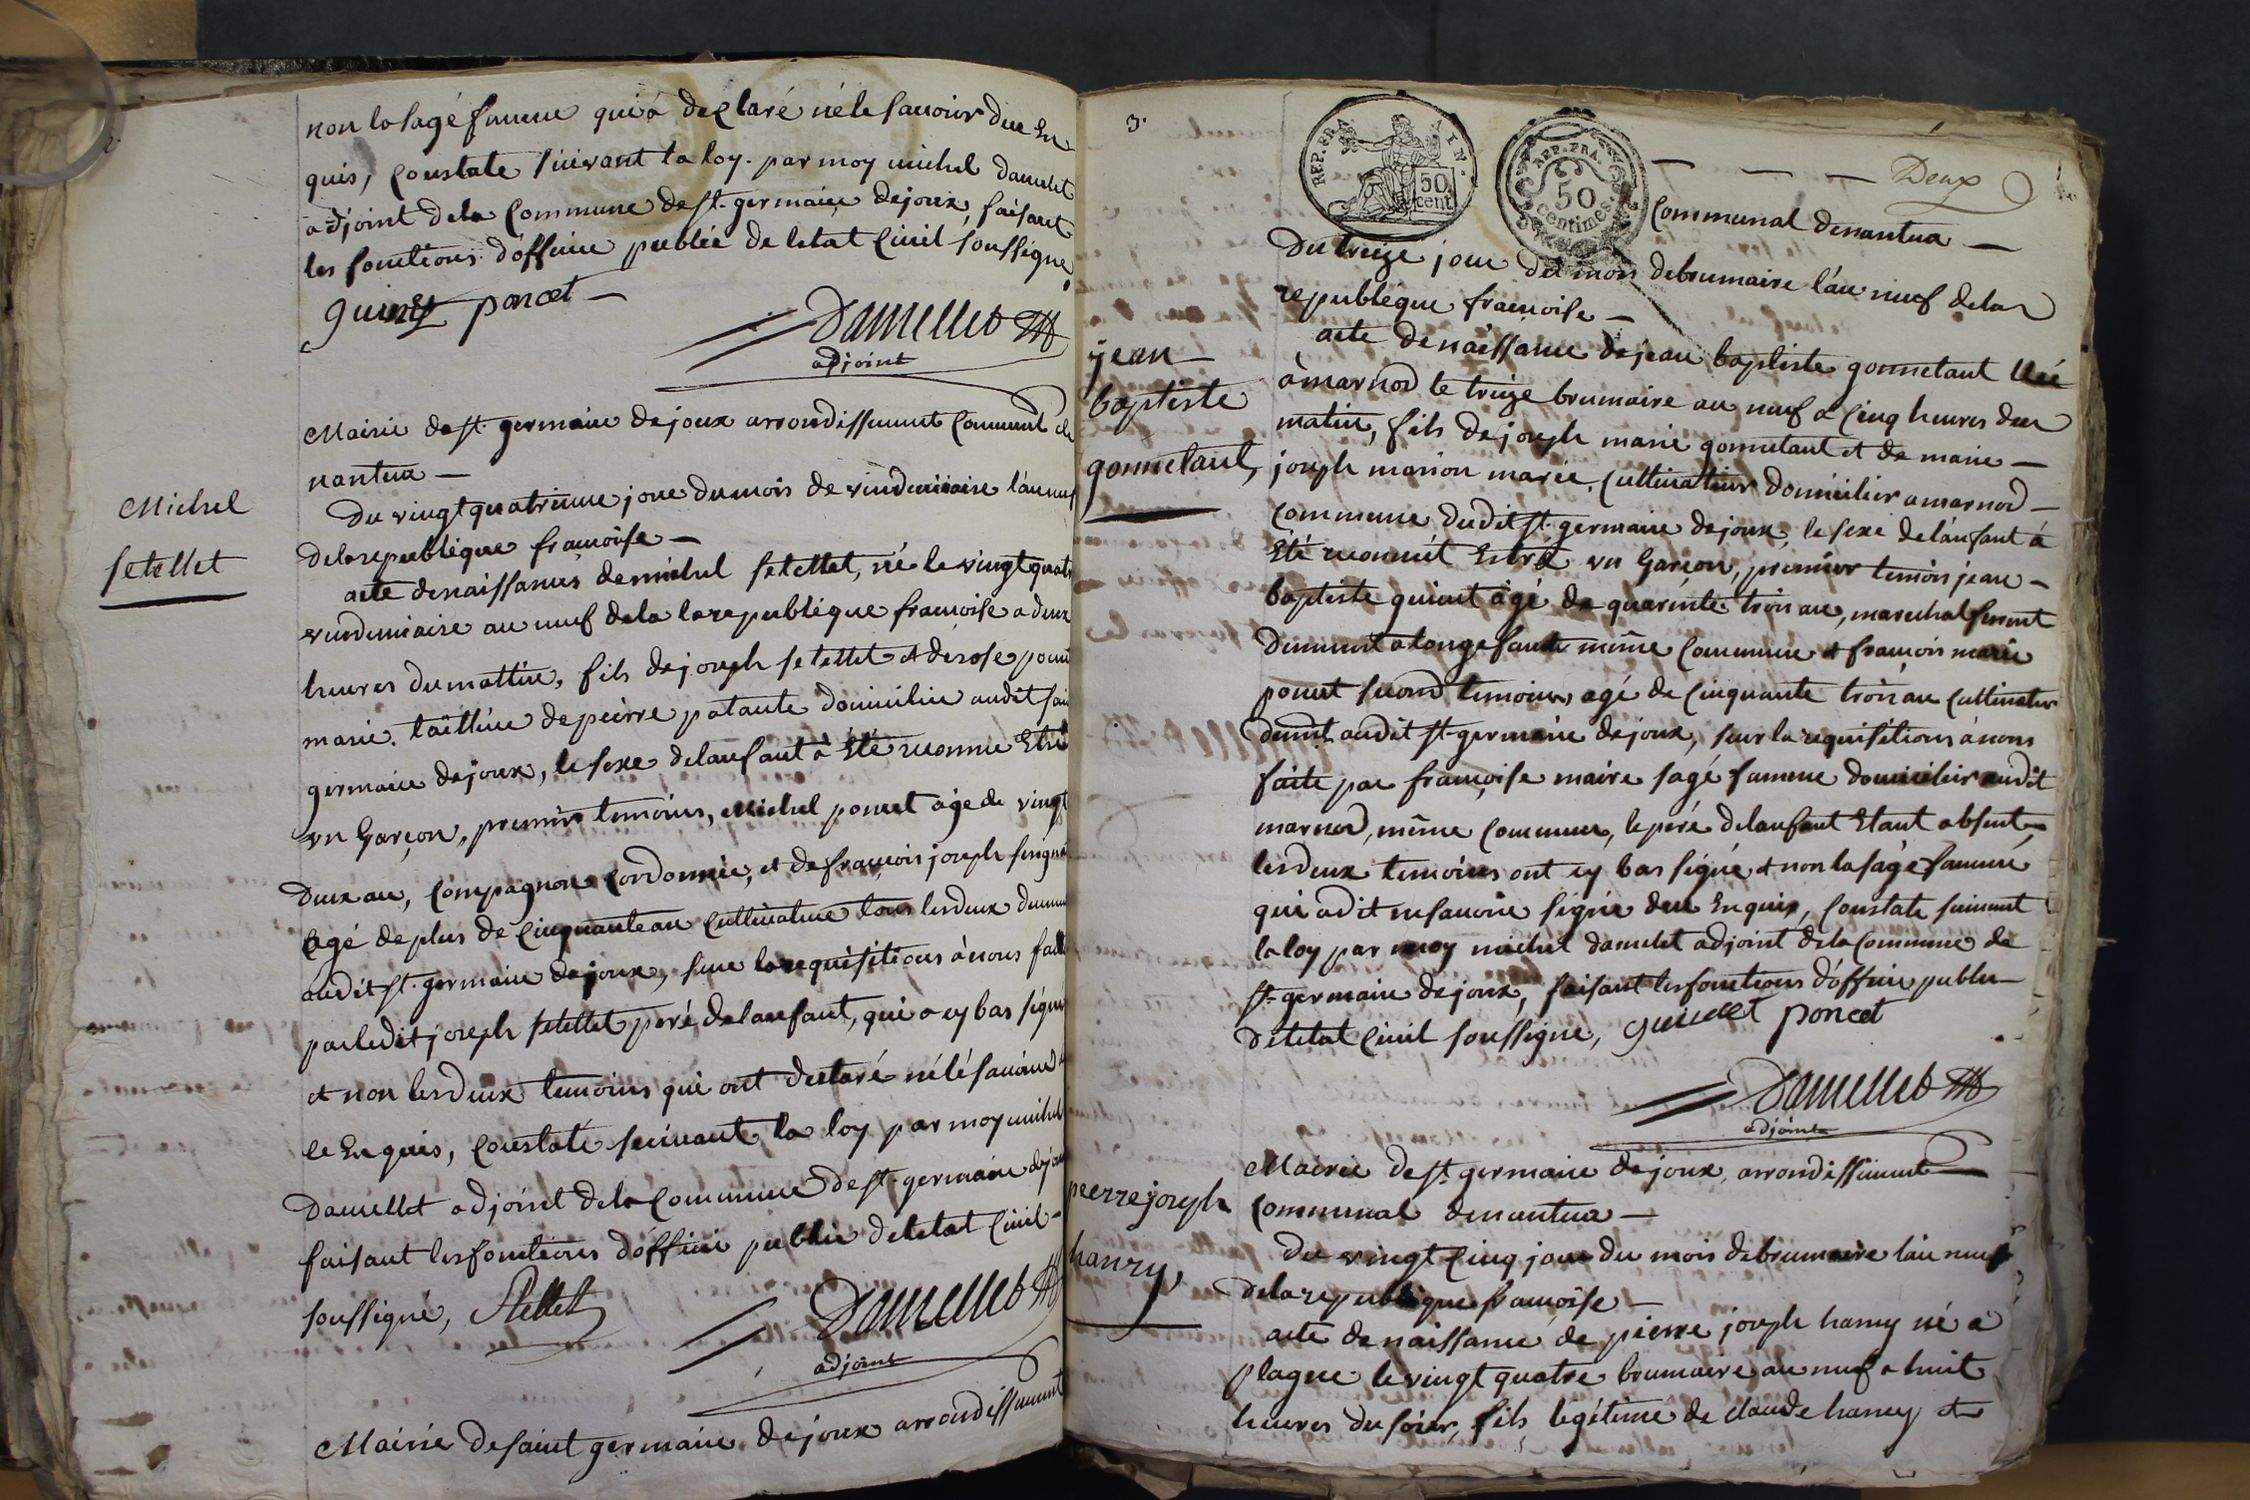 non la sagé famme qui à declaré né le savoir due En
quis, Constate suivant la loy. par moy michel damelet
adjoint dela Commune de st. germain dejoux, faisant
les fonctions d'officie publée de letat Civil soussigné
guinet poncet —
Damellet
adjoint
Mairie de st. germain dejoux arrondissement Communal de
nantua —
Michel
setellet
Du vingt quatrieme jour dumois de vindemiaire l'an neuf
dela republique françoise —
acte denaissance de michel setellet, né le vingt quatre
vindemiaire an neuf dela la republique françoise a deux
heures du mattin, fils de joseph setellet et de rose
marie. taillieu de peirre patante domicilie audit
germain dejoux, le sexe delanfant à Eté reconnu Estre
un Garçon, premier temoins, Michel poncet âge de vingt
deux an, Compagnon Cordonnie, et de françois joseph
agé de plus de Cinquante an Cultivateur tous lesdeux
audit st. germain dejoux, sur la requisitions à nous faitte
par ledit joseph setellet peré delanfant, qui a cy bas signé
et non les deux temoins qui ont declaré né lé savoir
ce Enquis, Constate suivant la loy par moy michel
Damellet adjoint dela Commune de st. germain dejoux
faisant les fonctions d'officie publie de letat Civil
soussigné, Setellet
Damellet
adjoint
Mairie de saint germain dejoux arrondissement
3.
REP. FRA.
50 cent
REP. FRA.
50 centimes
Deux
Communal denantua —
Du treize jour du mois debrumaire l'an neuf dela
republique françoise —
jean
baptiste
gonnetant,
acte denaissance de jean baptiste gonnetant Né
à marnod le treize brumaire an neuf a Cinq heures du
matin, fils de joseph marie gonnetant et de marie —
joseph marion marie, Cultivateur domicilier a marnod —
Commune dudit st. germain dejoux, le sexe delanfant à
Eté reconnut Estre un Garçon, premier temoin jean —
baptiste guinet âgé de quarente trois an, marechal ferrent
demeurt a longefand même Commune et françois marie
poncet second temoins agé de Cinquante trois an Cultivateur
demt. audit st. germain dejoux, sur la requisitions à nous
faite par françoise maire sagé famme domicilier audit
marnod, même Commune, le peré delanfant Etant absent,
les deux temoins ont cy bas signé et non la sage famme
qui a dit ne savoir signé due Enquis, Constate suivant
la loy par moy michel damelet adjoint dela Commune de
st. germain dejoux, faisant les fonctions d'officie publie —
de letat Civil soussigné, guinet poncet
Damellet
adjoint
Mairie de st. germain dejoux, arrondissement
Communal denantua —
pierre joseph
hanry,
Du vingt Cinq jour du mois debrumaire l'an neuf
dela republique françoise —
acte de naissance de pierre joseph hanry né a
plagne le vingt quatre brumaire an neuf a huit
heures du soir, fils légétime de claude hanry et